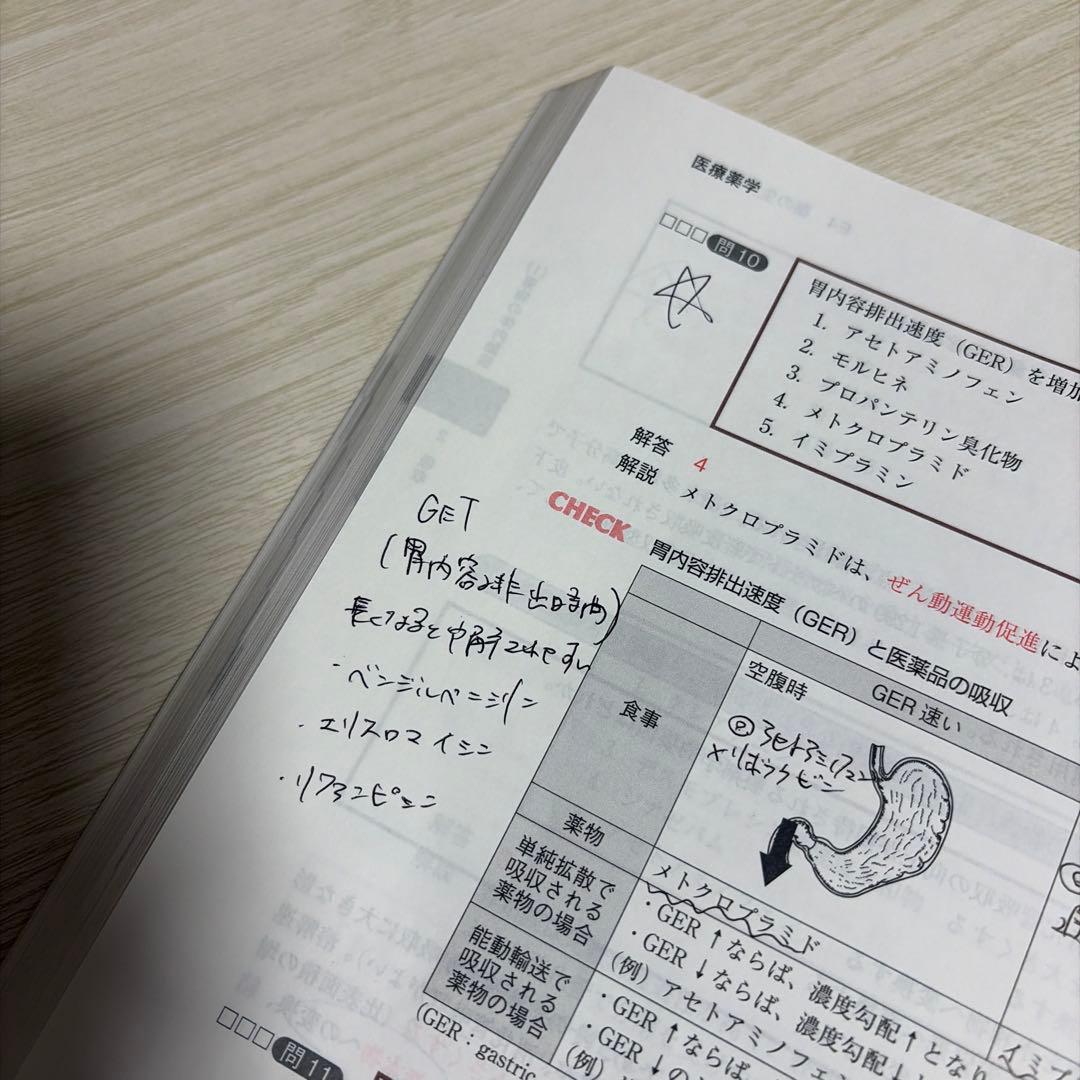 医療薬学
□□□ 問10
胃内容排出速度（GER）を増加
1. アセトアミノフェン
2. モルヒネ
3. プロパンテリン臭化物
4. メトクロプラミド
5. イミプラミン
解答 4
解説 メトクロプラミドは、ぜん動運動促進によ
CHECK 胃内容排出速度（GER）と医薬品の吸収
GET
(胃内容排出時間)
長くなると
・ベンジルペニシリン
・エリスロマイシン
・リファンピシン
GER 速い
食事
空腹時
Ⓟ アセトアミノフェン
×リボフラビン
薬物
メトクロプラミド
単純拡散で
吸収される
薬物の場合
・GER↑ならば、濃度勾配↑となり
・GER↓ならば、濃度勾配↓と
(例) アセトアミノフェン
能動輸送で
吸収される
薬物の場合
・GER↑ならば
・GER↓の
(例)
(GER：gastric
□□□ 問11